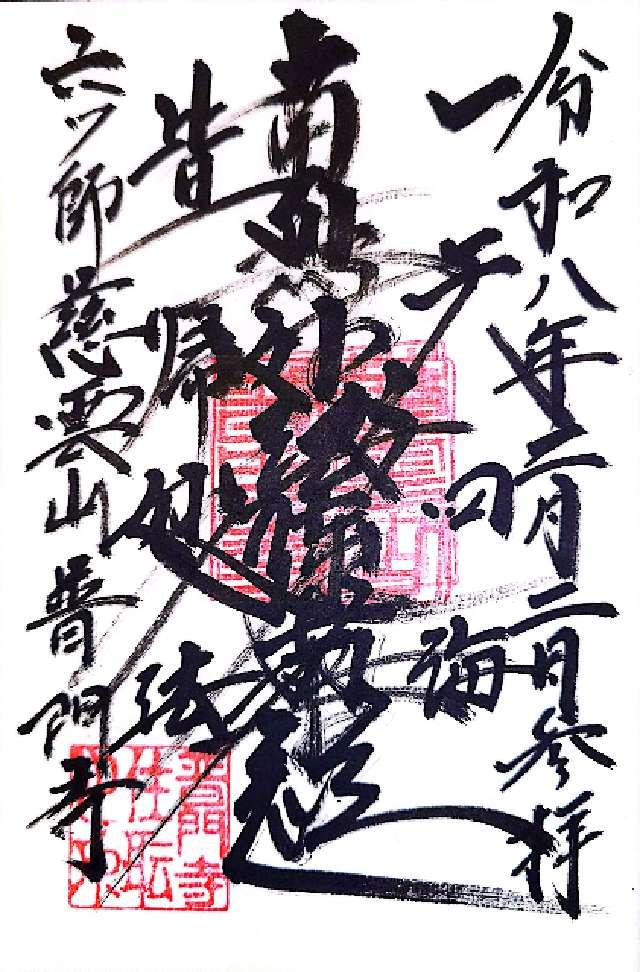 令和八年二月二日参拝
一天四海
南無妙法蓮華経
皆帰妙法
六ツ師慈雲山普門寺
普門寺